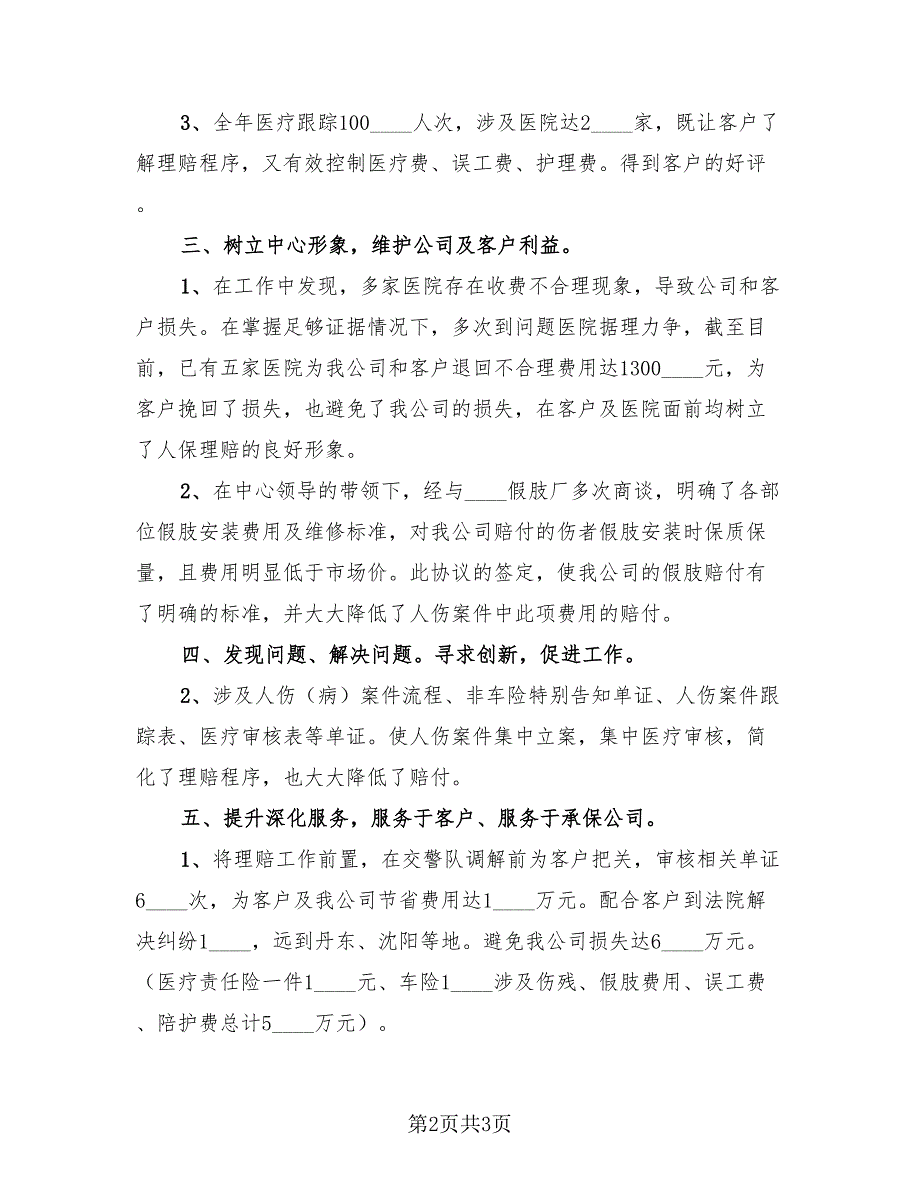 3、全年医疗跟踪100____人次，涉及医院达2____家，既让客户了
解理赔程序，又有效控制医疗费、误工费、护理费。得到客户的好评
。
三、树立中心形象，维护公司及客户利益。
1、在工作中发现，多家医院存在收费不合理现象，导致公司和客
户损失。在掌握足够证据情况下，多次到问题医院据理力争，截至目
前，已有五家医院为我公司和客户退回不合理费用达1300____元，为
客户挽回了损失，也避免了我公司的损失，在客户及医院面前均树立
了人保理赔的良好形象。
2、在中心领导的带领下，经与____假肢厂多次商谈，明确了各部
位假肢安装费用及维修标准，对我公司赔付的伤者假肢安装时保质保
量，且费用明显低于市场价。此协议的签定，使我公司的假肢赔付有
了明确的标准，并大大降低了人伤案件中此项费用的赔付。
四、发现问题、解决问题。寻求创新，促进工作。
2、涉及人伤（病）案件流程、非车险特别告知单证、人伤案件跟
踪表、医疗审核表等单证。使人伤案件集中立案，集中医疗审核，简
化了理赔程序，也大大降低了赔付。
五、提升深化服务，服务于客户、服务于承保公司。
1、将理赔工作前置，在交警队调解前为客户把关，审核相关单证
6____次，为客户及我公司节省费用达1____万元。配合客户到法院解
决纠纷1____，远到丹东、沈阳等地。避免我公司损失达6____万元。
（医疗责任险一件1____元、车险1____涉及伤残、假肢费用、误工费
、陪护费总计5____万元）。
第2页共3页